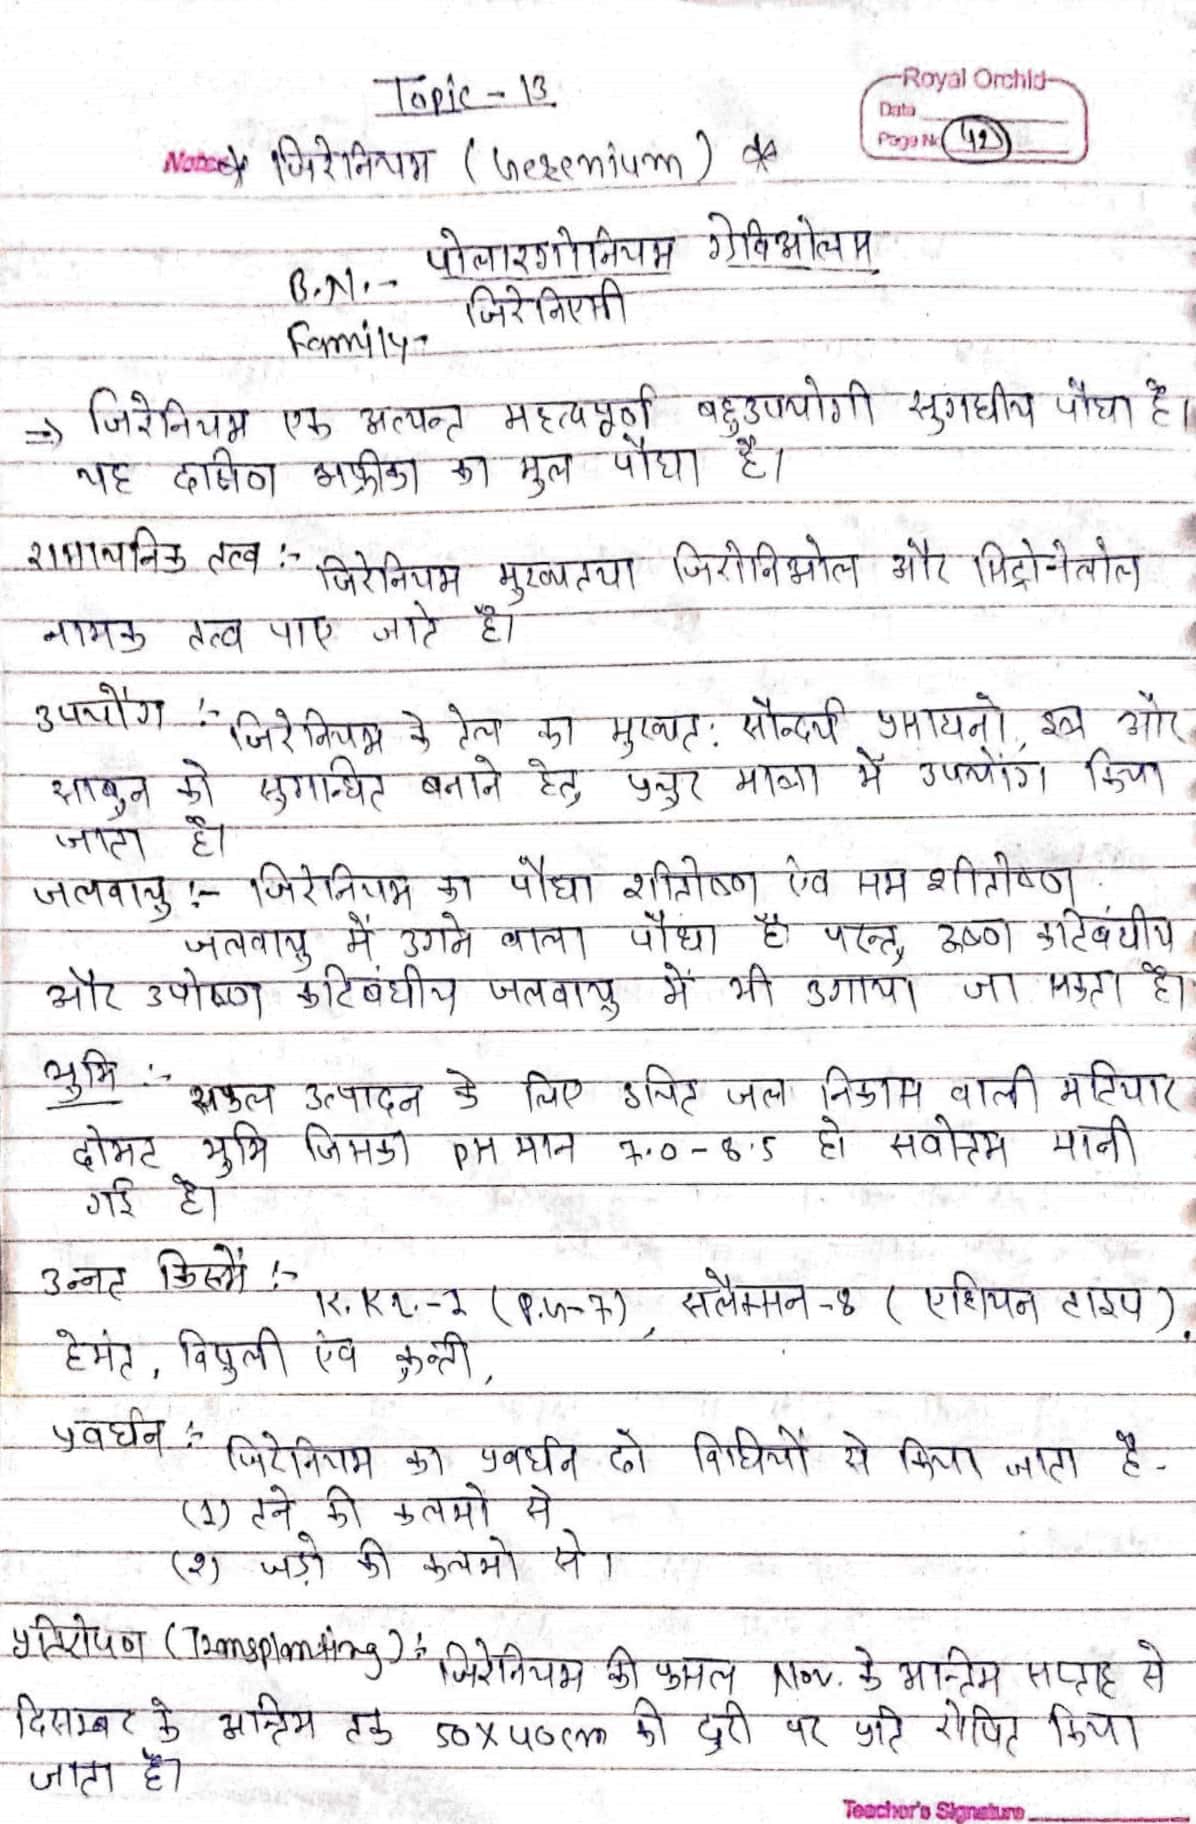 Topic - 13
Royal Orchid
Date
Page No 42
Notes * जिरेनियम (Gerenium) *
B.N. - पोलारगोनियम ग्रेविओलम
Family - जिरेनिएसी
⇒ जिरेनियम एक अत्यन्त महत्वपूर्ण बहुउपयोगी सुगंधीय पौधा है।
यह दक्षिण अफ्रीका का मुल पौधा है।
रासायनिक तत्व :- जिरेनियम मुख्यतया जिरेनिओल और सिट्रोनेलोल
नामक तत्व पाए जाते है।
उपयोग :- जिरेनियम के तेल का मुख्यत: सौन्दर्य प्रसाधनो, इत्र और
साबुन को सुगन्धित बनाने हेतु प्रचुर मात्रा में उपयोग किया
जाता है।
जलवायु :- जिरेनियम का पौधा शीतोष्ण एंव सम शीतोष्ण
जलवायु में उगने वाला पौधा है परन्तु ऊष्ण कटिबंधीय
और उपोष्ण कटिबंधीय जलवायु में भी उगाया जा सकता है।
भुमि :- सफल उत्पादन के लिए उचित जल निकास वाली मटियार
दोमट भुमि जिसका PH मान 7.0 - 8.5 हो सर्वोत्तम मानी
गई है।
उन्नत किस्में :- K.K.L.-1 (P.G-7), सलेक्सन-8 (एशियन टाइप),
हेमंत, विपुली एंव कुन्ती,
प्रवर्धन :- जिरेनियम का प्रवर्धन दो विधियों से किया जाता है -
(1) तने की कलमो से
(2) जड़ो की कलमो से।
प्रतिरोपण (Transplanting) :- जिरेनियम की फसल Nov. के अन्तिम सप्ताह से
दिसम्बर के अन्तिम तक 50X40cm की दुरी पर प्रति रोपित किया
जाता है।
Teacher's Signature